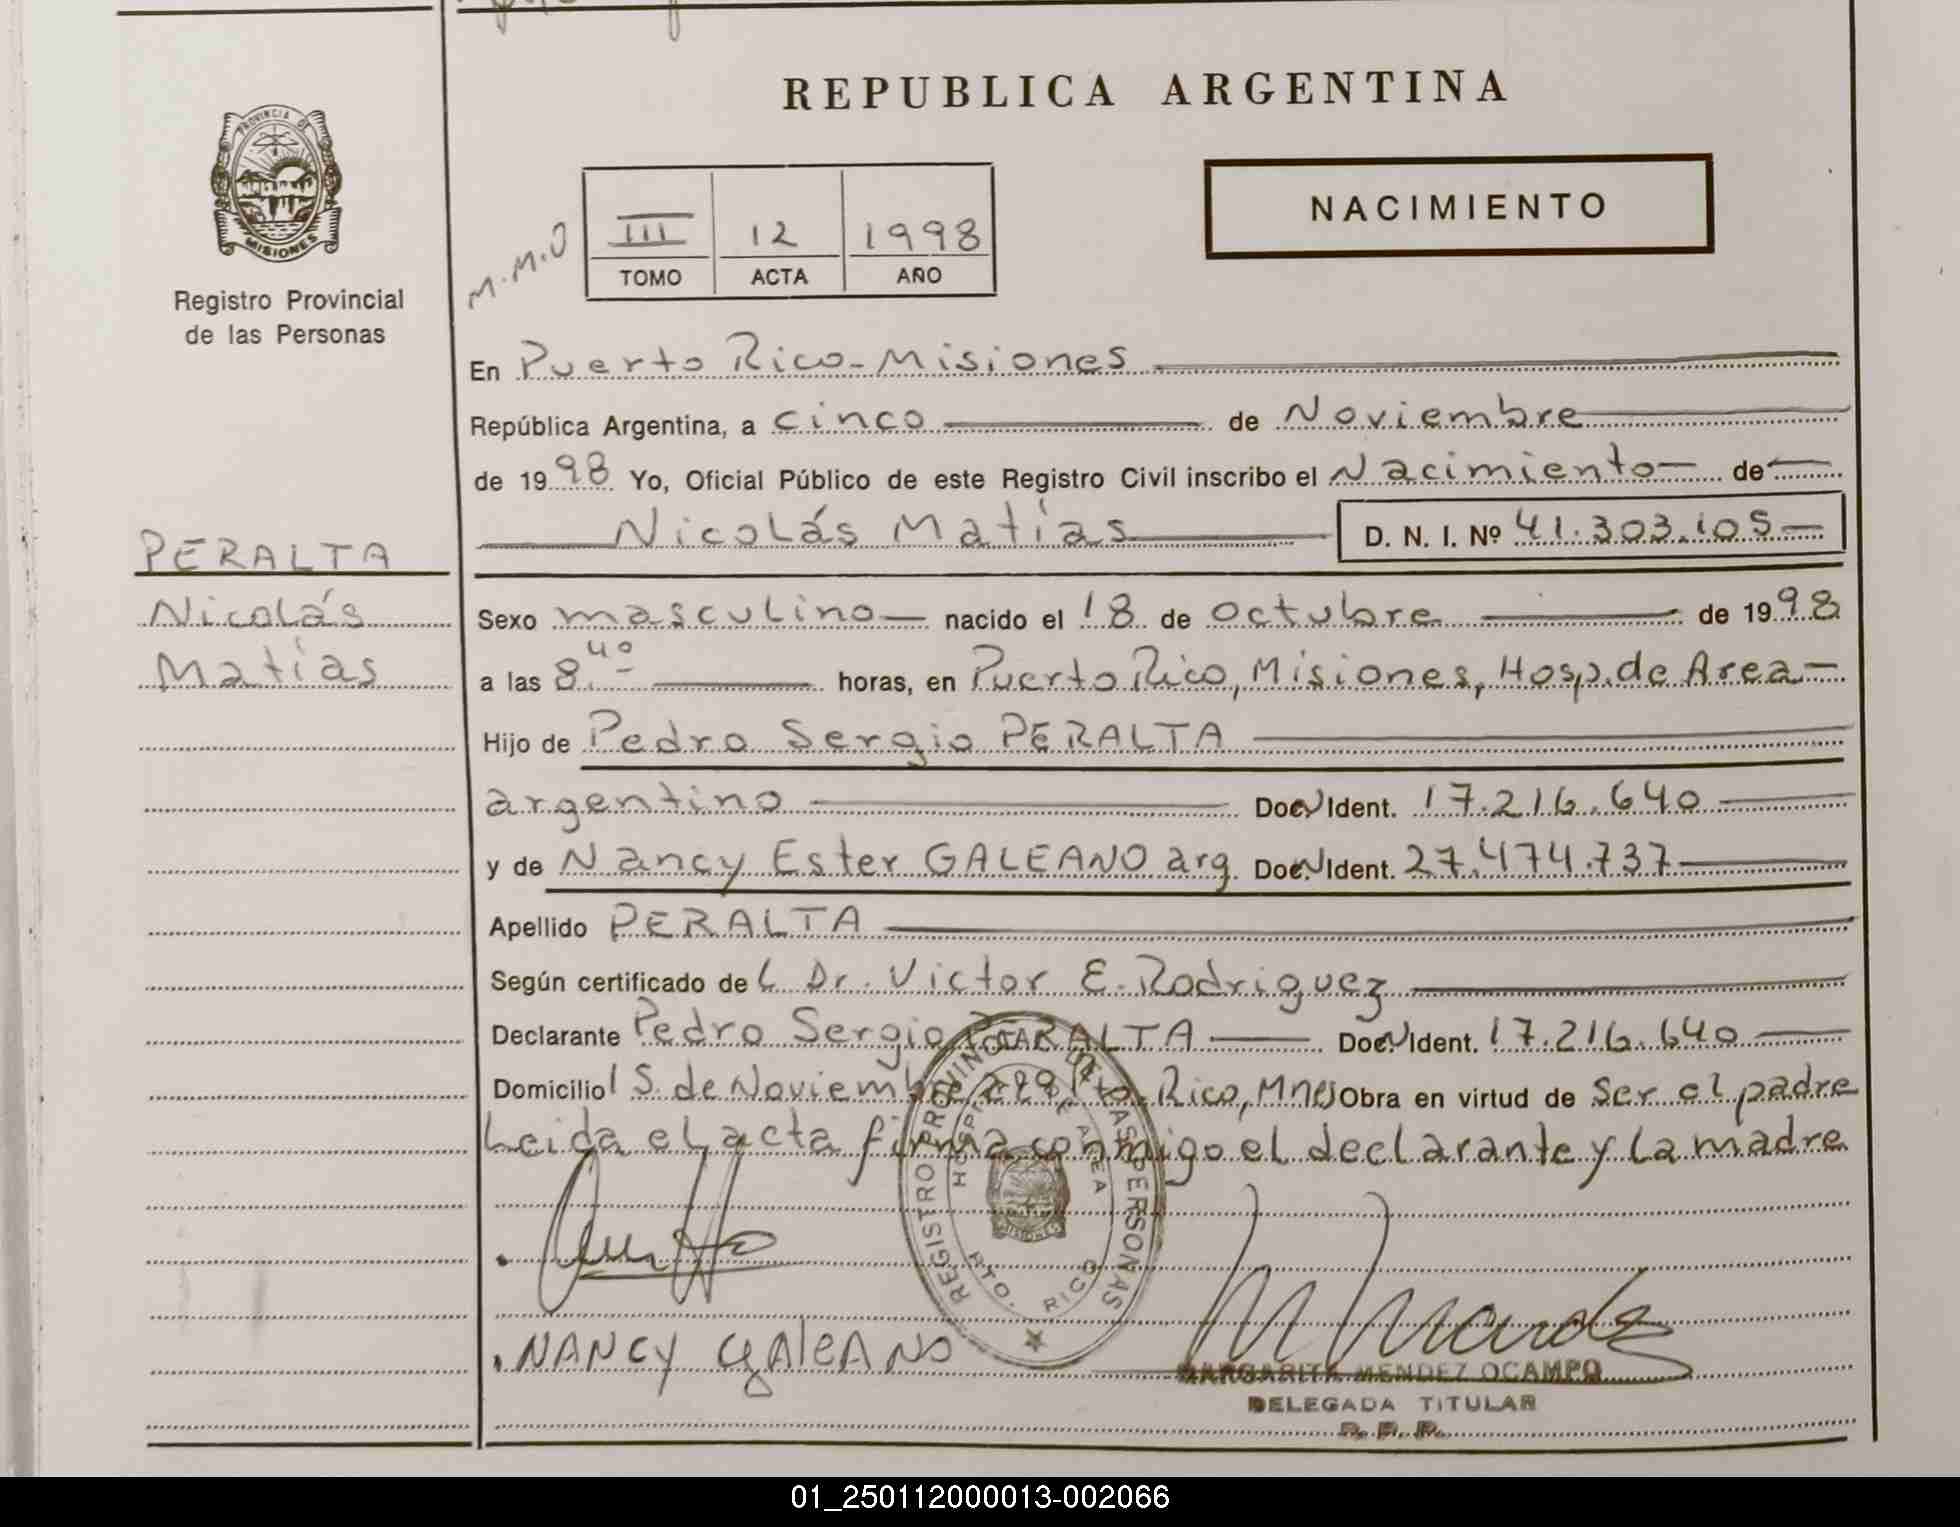 REPUBLICA ARGENTINA
PROVINCIA DE
MISIONES
Registro Provincial
de las Personas
M.M.O
III 12 1998
TOMO ACTA AÑO
NACIMIENTO
En Puerto Rico - Misiones
República Argentina, a cinco de Noviembre
de 1998 Yo, Oficial Público de este Registro Civil inscribo el Nacimiento de
Nicolás Matías D. N. I. Nº 41.303.105
PERALTA
Nicolás
Matías
Sexo masculino nacido el 18 de octubre de 1998
a las 8.40 horas, en Puerto Rico, Misiones, Hosp. de Area
Hijo de Pedro Sergio PERALTA
argentino Doc. Ident. 17.216.640
y de Nancy Ester GALEANO arg. Doc. Ident. 27.474.737
Apellido PERALTA
Según certificado del Dr. Victor E. Rodriguez
Declarante Pedro Sergio PERALTA Doc. Ident. 17.216.640
Domicilio 15 de Noviembre Pto. Rico, Mnes Obra en virtud de ser el padre
Leida el acta firma conmigo el declarante y la madre
REGISTRO PROVINCIAL DE LAS PERSONAS
HOSPITAL DE AREA
PTO. RICO
MISIONES
NANCY GALEANO
MARGARITA MENDEZ OCAMPO
DELEGADA TITULAR
R. P. P.
01_250112000013-002066